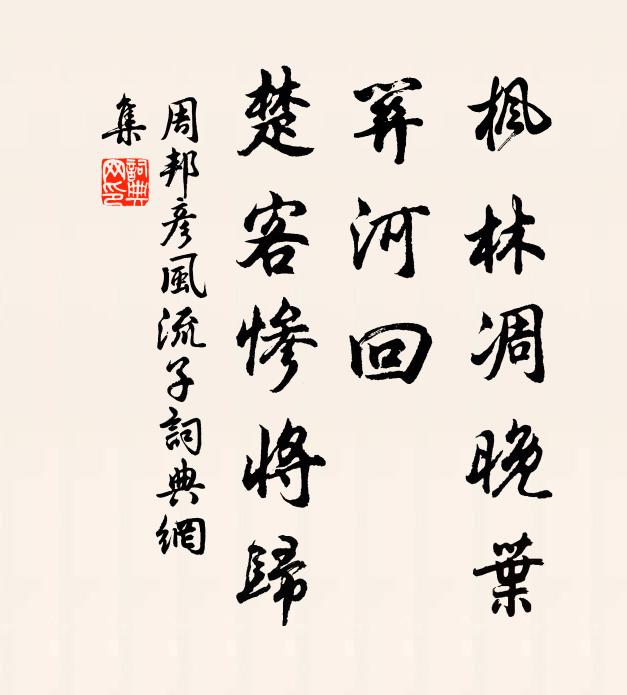 楓林凋晚葉
關河回
楚客慘將歸
周邦彦風流子詞典網
集
詞典
网印